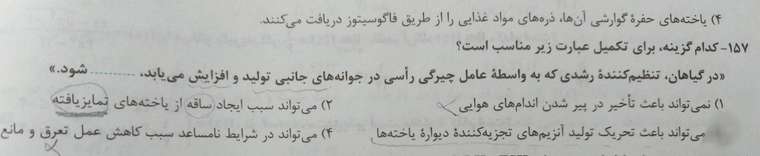 ۴) یاخته‌های حفرهٔ گوارشی آن‌ها، ذره‌های مواد غذایی را از طریق فاگوسیتوز دریافت می‌کنند.
۱۵۷- کدام گزینه، برای تکمیل عبارت زیر مناسب است؟
«در گیاهان، تنظیم‌کنندهٔ رشدی که به واسطهٔ عامل چیرگی رأسی در جوانه‌های جانبی تولید و افزایش می‌یابد، .......... شود.»
۱) نمی‌تواند باعث تأخیر در پیر شدن اندام‌های هوایی ۲) می‌تواند سبب ایجاد ساقه از یاخته‌های تمایزیافته
می‌تواند باعث تحریک تولید آنزیم‌های تجزیه‌کنندهٔ دیوارهٔ یاخته‌ها ۴) می‌تواند در شرایط نامساعد سبب کاهش عمل تعرق و مانع